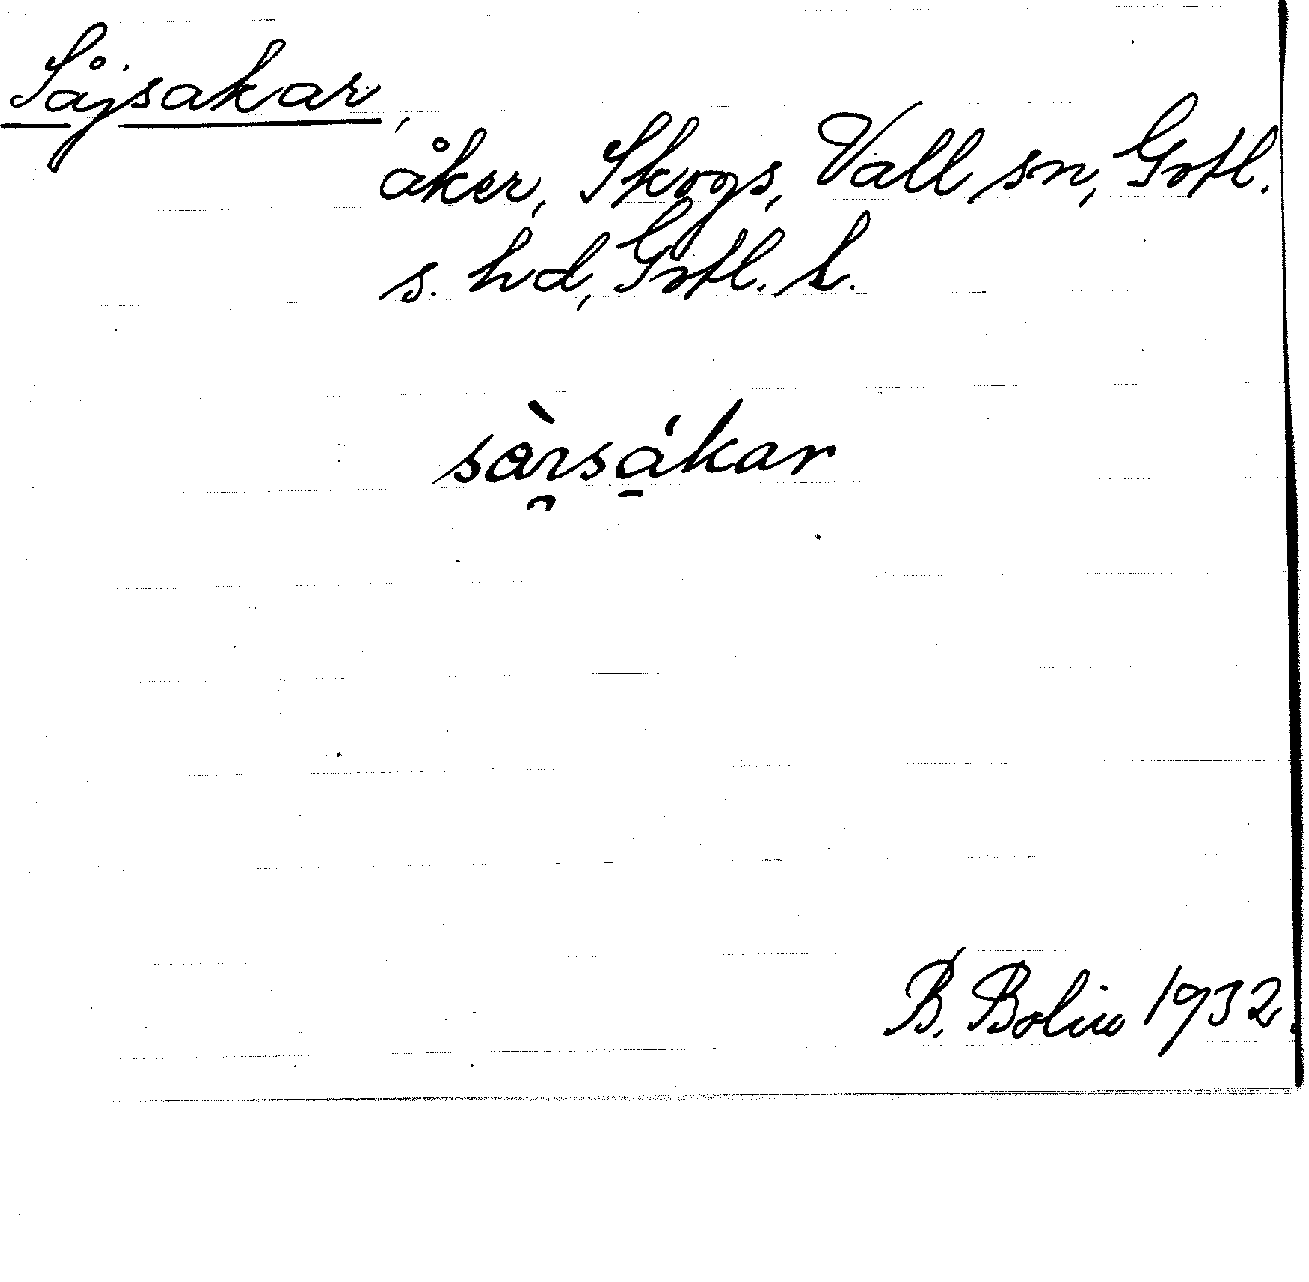 Såjsakar,
åker, Skogs, Vall sn, Gotl.
s. hd, Gotl. l.
sàɪsákar
B. Bolin 1932.